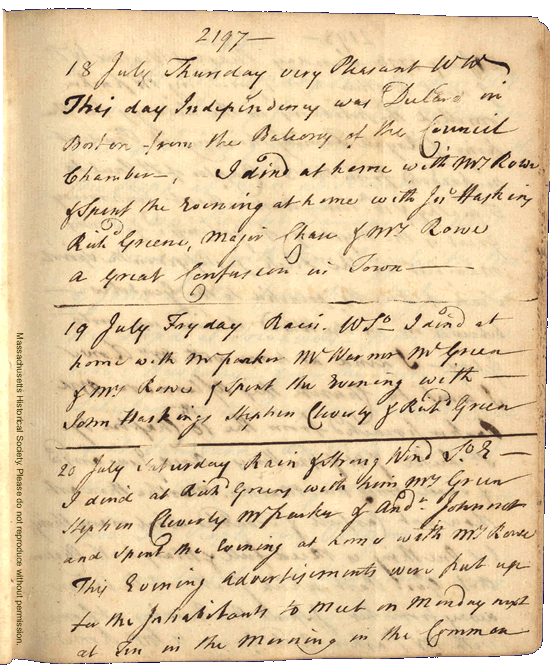 2197—
18 July Thursday very Pleasant WW
This day Independency was Declard in
Boston from the Balcony of the Council
Chamber—, I dind at home with Mrs Rowe
& Spent the Evening at home with Jos Haskins
Richd Greene, Major Chase & Mrs Rowe
a Great Confusion in Town—
19 July Fryday Rain. W So I dind at
home with Mr Parker Mr Warner Mr Green
& Mrs Rowe & spent the Evening with —
John Haskings Stephen Cleverly & Richd Green
20 July Saturday Rain & Strong Wind So E —
I dind at Richd Greens with him Mrs Green
Stephen Cleverly Mr Parker & Andw Johonnot
and Spent the Evening at home with Mrs Rowe
This Evening Advertisements were put up
for the Inhabitants to Meet on Monday next
at Ten in the Morning in the Common
Massachusetts Historical Society. Please do not reproduce without permission.